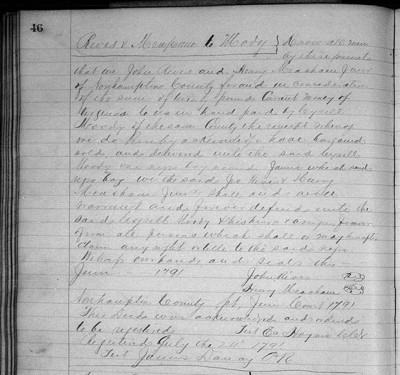 46
Rives & Meacham to Moody } Know all men
by these presents
that we John Rives and Henry Meacham Junr
of Northampton County for and in consideration
of the sum of pounds Current money of
Virginia to us in hand paid by
Moody of the same County the receipt whereof
we do hereby acknowledge have bargained
sold and delivered unto the said
Moody one negro boy named Jamie which said
negro boy we the said Jno Rives & Henry
Meacham Junr shall and will
warrant and forever defend unto the
said Moody & his heirs & assigns forever
from all persons which shall or may
claim any right or title to the said negro
Witness our hands and seals this
June 1791 John Rives
Henry Meacham
Northampton County Sct June Court 1791
This Deed was acknowledged and ordered
to be registered Test
Registered July the 1791
Test James